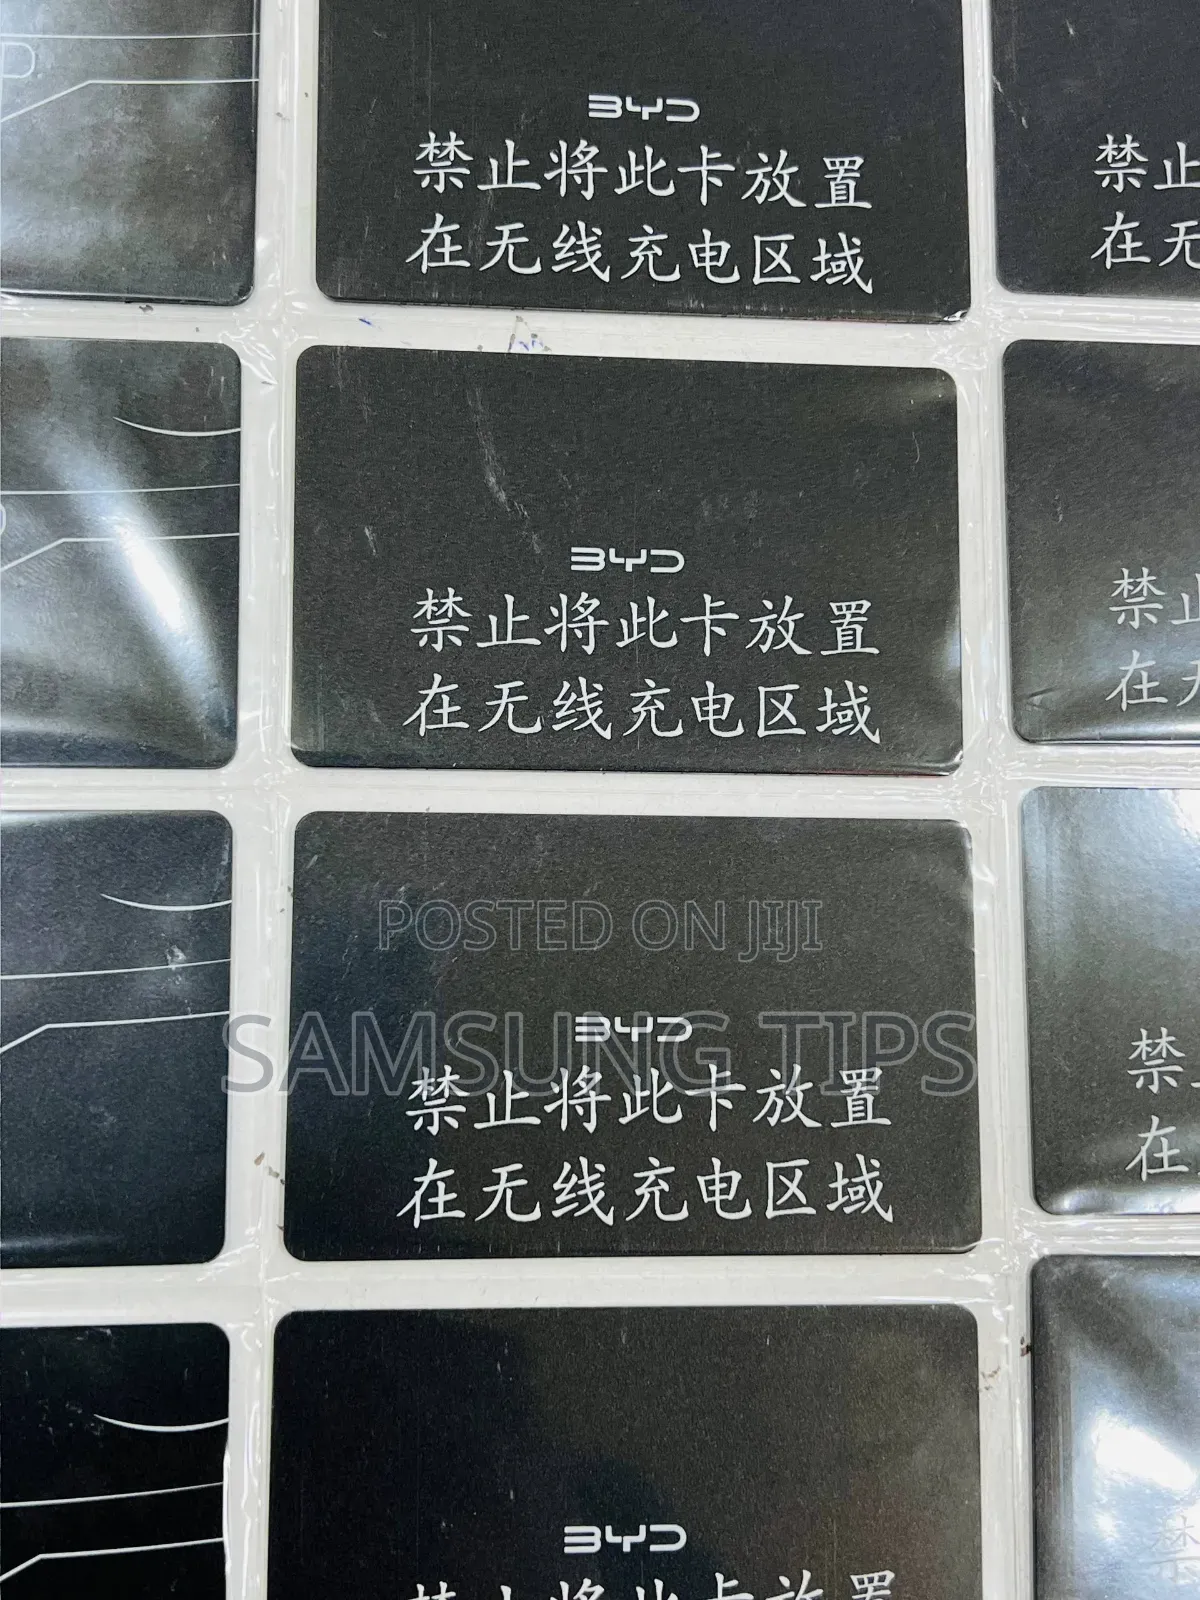 BYD
禁止将此卡放置
在无线充电区域
禁止
在无
BYD
禁止将此卡放置
在无线充电区域
禁止
在无
POSTED ON JIJI
BYD
SAMSUNG TIPS
禁止将此卡放置
在无线充电区域
禁
在
BYD
禁止将此卡放置